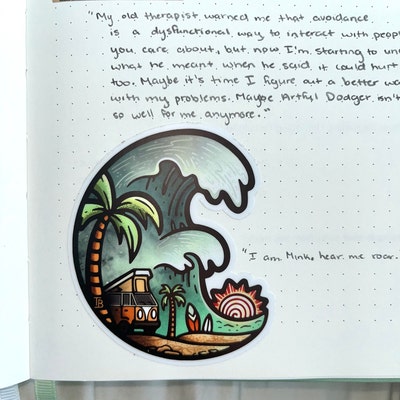 "My old therapist warned me that avoidance
is a dysfunctional way to interact with
you care about, but now I'm starting to
what he meant when he said it could hurt
too. Maybe it's time I figure out a better
with my problems. Maybe Artful Dodger isn't
so well for me anymore."
"I am Mink, hear me roar.